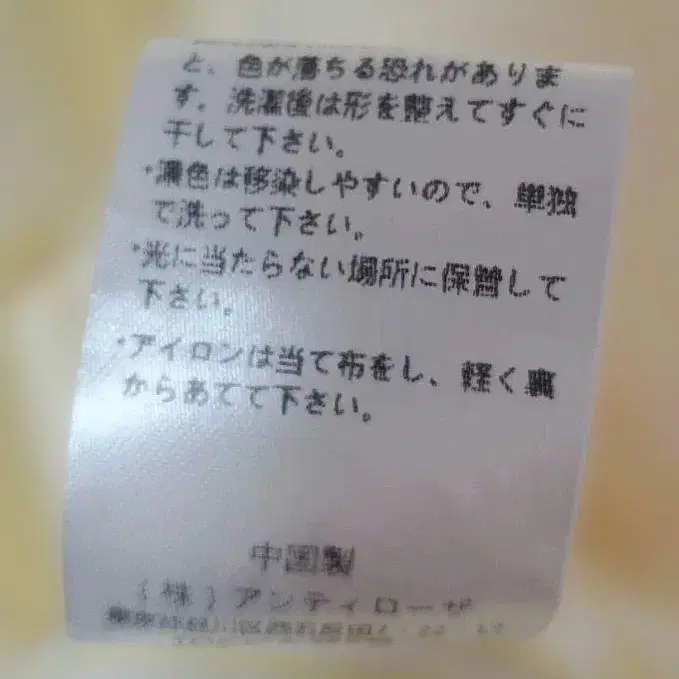 と、色が落ちる恐れがありま
す。洗濯後は形を整えてすぐに
干して下さい。
・濃色は移染しやすいので、単独
で洗って下さい。
・光に当たらない場所に保管して
下さい。
・アイロンは当て布をし、軽く裏
からあてて下さい。
中国製
(株)アンティローザ